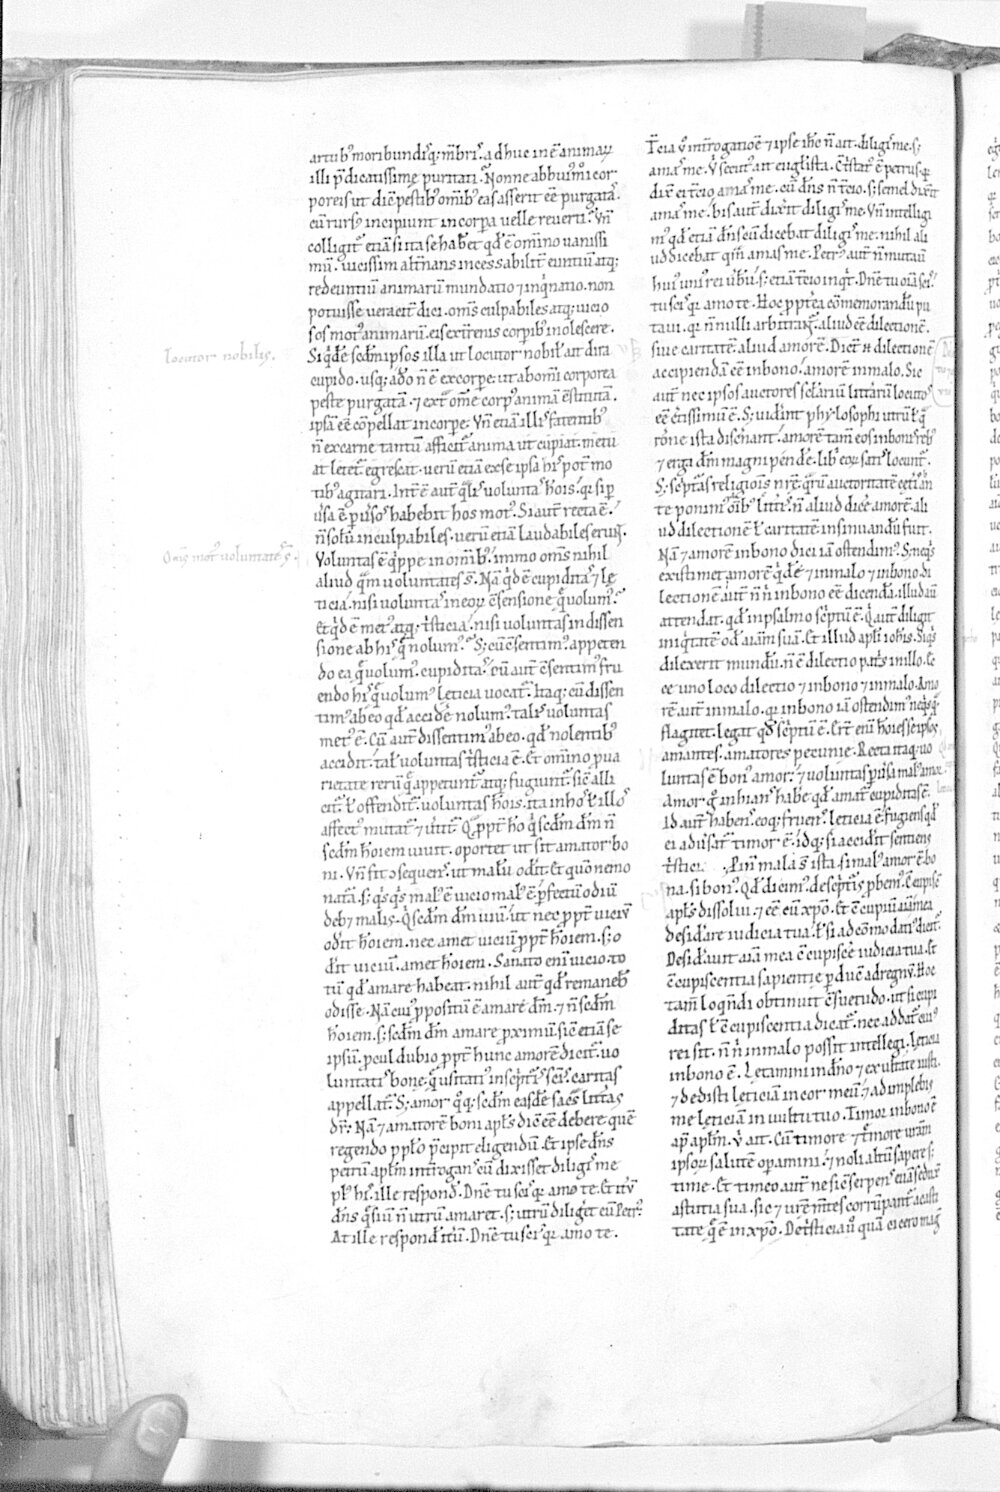 artubꝰ moribundiq; mẽbrꝭ. adhuc inẽ animaꝝ
illi p̃dicatissimę puritati. Nonne abbuiꝰmĩ cor
poreis ut dic̃ pestibꝰ om̃ibꝰ eas asserit eẽ purgatã.
cũ rursꝰ incipiunt incorpa uelle reuerti. Vñ
colligit̃ etiã si ita se haƀet qđ ẽ om̃ino uanissi
mũ. uicissim alt̃nans incessabilit̃ euntiũ atq;
redeuntiũ animarũ mundatio ⁊inqᷓnatio. non
potuisse ueracit̃ dici. om̃s culpabiles atq; uicio
sos motꝰ animarũ. eis ex t̃renis corpibꝰ inolescere.
Siqͥdẽ scđm ipsos illa ut locutor nobił ait dira
cupido. usq; adõ ñ ẽ excorpe. ut ab om̃i corporea
peste purgatã. ⁊ext̃ om̃e corpꝰ animã ɔ̃stitutã.
ipsã eẽ cõpellat incorpe. Vñ etiã illꝭ fatentibꝰ
ñ excarne tantũ afficit̃ anima ut cupiat. metu
at letet̃. egrescat. uerũ etiã exse ipsa hiꝭ pot̃ mo
tibꝰ agitari. Int̃ẽ aut̃ qᷓlꝭ uoluntaꝭ hoĩs. qͥ si p̲
u̾sa ẽ. pͥuꝰsoꝰ habebit hos motꝰ. Si aut̃ recta ẽ.
ñ solũ inculpabiles. uerũ etiã laudabiles erunt.
Voluntas ẽ qͥppe in om̃ibꝰ. immo om̃s nihil
aliud qᷓm uoluntates s̃. Nã qͥd ẽ cupiditaꝭ ⁊ le
ticia. nisi uoluntaꝭ in eoꝝ ɔ̃sensione qᷓ uolumꝰ.
Et qͥd ẽ metꝰ atq; tͥsticia. nisi uoluntas in dissen
sione ab hiꝭ qᷓ nolumꝰ. S; cũ ɔ̃sentimꝰ appeten
do ea qᷓ uolumꝰ. cupiditaꝭ. cũ aut̃ ɔ̃sentimꝰ fru
endo hiꝭ qᷓ uolumꝰ leticia uocat̃. Itaq; cũ dissen
timꝰ ab eo qđ accidẽ nolumꝰ. taliꝭ uoluntas
metꝰ ẽ. Cũ aut̃ dissentimꝰ ab eo. qđ nolentibꝰ
accidit. tał uoluntas tͥsticia ẽ. Et om̃ino p̲ ua
rietate rerũ qᷓ appetunt̃ atq; fugiunt̃. sic̃ alli
cit̃ ł offendit̃. uoluntas hoĩs. ita in hoꝰ ł illoꝰ
affectꝰ mutat̃ ⁊ u̾tit̃. Qᵃp̲pt̃ hõ qͥ scđm dm̃ ñ
scđm hoĩem uiuit. oportet ut sit amator bo
ni. Vñ fit ɔsequenꝭ. ut malũ odit. Et qͥ nemo
natᷓa. s; qͥsqͥs malꝰ ẽ uicio malꝰ ẽ. p̲fectũ odiũ
deb; malis. qͥ scđm dm̃ uiuit. ut nec p̲pt̃ uiciũ
odit hoĩem. nec amet uiciũ p̲pt̃ hoĩem. s; o
dit uiciũ. amet hoĩem. Sanato eni uicio. to
tũ qđ amare habeat. nihil aut̃ qđ remaneb̃
odisse. Nã cuiꝰ p̲positũ ẽ amare dm̃. ⁊ ñ scđm
hoĩem. s; scđm dm̃ amare p̲ximũ. sic̃ etiã se
ipsũ. p̲cul dubio p̲pt̃ hunc amorẽ dicit̃. uo
luntatiꝭ bonę. qᷓ usitatiꝰ in sc̃pt̃ꝭ sc̃iꝭ. caritas
appellat̃. S; amor qͦq; scđm easdẽ sac̃s litt̃as
dr̃. Nã ⁊amatorẽ boni apl̃s dic̃ eẽ debere quẽ
regendo ppl̃o p̃cipit eligendũ. Et ipse dñs
petrũ apl̃m int̃roganꝭ cũ dixisset diligiꝭ me
plꝰ hiꝭ. ille respond̃. Dñe tu sciꝭ qͥ amo te. Et it̃ũ
dñs qͥsiũ ñ utrũ amaret. s; utrũ diliget̃ eũ Petrꝰ.
At ille respond̃ it̃ũ. Dñe tu sciꝭ qͥ amo te.
T̃cia ũ int̃rogatioẽ ⁊ ipse ihc̃ ñ ait. diligiꝭ me. s;
amaꝭ me. V̾ secutꝰ ait eug̃lista. Cͦt̾statꝰ ẽ petrus. qͥ
dix̃ ei t̃cio amaꝭ me. cũ dñs ñ t̃cio. s; semel dix̃it
amaꝭ me. bis aut̃ dix̃it diligiꝭ me. Vñ intelligi
mꝰ qđ etiã dñs cũ dicebat diligiꝭ me. nihil ali
ud dicebat qᷓm amas me. Petrꝰ aut̃ ñ mutaũ
huiꝰ uniꝰ rei u̾bũ. s; etiã t̃cio inqͥt. Dñe tu oĩa sciꝭ.
tu sciꝭ qͥ amo te. Hoc p̲pt̾ea cõmemorandũ pu
taui. qͥ ñnulli arbitrant̃. aliud eẽ dilectionẽ.
siue caritatẽ. aliud amorẽ. Dic̃t ñ dilectionẽ
accipiendã eẽ inbono. amorẽ in malo. Sic
aut̃ nec ipsos auctores sc̃lariũ litt̃arũ locutos
eẽ c̃tissimũ ẽ. S; uid̃int phylosophi utrũ ł qᷓ
rõne ista disc̃nant. amorẽ tam̃ eos in boniꝭ rebꝰ
⁊ erga dm̃ magni pende̾. libꝭ eoꝝ satiꝭ locunt̃.
S; sc̃pt̾as religioĩs nr̃e. qᷓrũ auctoritatẽ cet̾iꝭ om̃
te ponimꝰ om̃ibꝰ litt̾iꝭ. ñ aliud dice̾ amorẽ. ali
ud dilectionẽ ł caritatẽ insinuandũ fuit.
Nã ⁊amorẽ in bono dici iã ostendimꝰ. S; neqͥs
existimet amorẽ qͥdẽ ⁊ in malo ⁊ inbono. di
lectionẽ aut̃ ñ ñ inbono eẽ dicendã. illud aũ
attendat. qđ in psalmo sc̃ptũ ẽ. Qͥ aut̃ diligit
iniqͥtatẽ odit aĩam suã. Et illud apl̃i ioh̃is. Siqͥs
dilexerit mundũ. ñ ẽ dilectio pat̾s in illo. Ec
ce uno loco dilectio ⁊ inbono ⁊ in malo. Amo
rẽ aut̃ in malo. qͥ inbono iã ostendimꝰ neqͥsq̃
flagitet. legat qđ sc̃ptũ ẽ. Er̃t enĩ hoĩes seipsos
amantes. amatores pecunie. Recta itaq; uo
luntas ẽ bonꝰ amor. ⁊ uoluntas p̲u̾sa malꝰ amor.
Amor g̊ inhianꝭ habe̾ qđ amat̃ cupiditas ẽ.
Id aut̃ habenꝭ eoq; fruenꝭ. leticia ẽ. fugiens qđ
ei adu̾sat̃. timor ẽ. idq; si accid̾it sentiens
tͥstici. P̲inᵉ mala s̃ ista si malꝰ amor ẽ. bo
na si bonꝰ. Qđ dicimꝰ. de sc̃pt̾is p̲bemꝰ. Cͦcupisc̃
apl̃s dissolui. ⁊ eẽ cũ xp̃o. Et ɔ̃cupiuit aĩa mea
desid̾are iudicia tua. ł si adcõmodatiꝰ dicit̃.
Desid̾auit aĩa mea ɔ̃cupisce̾ iudicia tua. Et
ɔ̃cupiscentia sapientie p̲ducẽ ad regnũ. Hoc
tam̃ loqͤndi obtinuit ɔ̃suetudo. ut si cupi
ditas ł ɔ̃cupiscentia dicat̃. nec addat̃ cuiꝰ
rei sit. ñ ñ in malo possit intellegi. leticia
inbono ẽ. Letamini indño ⁊ exultate iusti.
⁊ dedisti leticiã in cor meũ. ⁊ adimplebis
me leticia in uultu tuo. Timor inbono ẽ
ap̲ apl̃m. ũ ait. Cũ timore ⁊ t̾more uram̃
ipsoꝝ salutẽ op̲amini. ⁊ noli altũ sape̾. s;
time. Et timeo aut̃ ne sic̃ serpenꝭ euã seduxit
astutia sua. sic ⁊ ur̃e m̃tes corrũpant̃ a casti
tate qᷓ ẽ in xp̃o. De tͥsticia ũ quã cicero magꝭ
locutor nobilis.
Om̃s motꝰ uoluntates s̃.